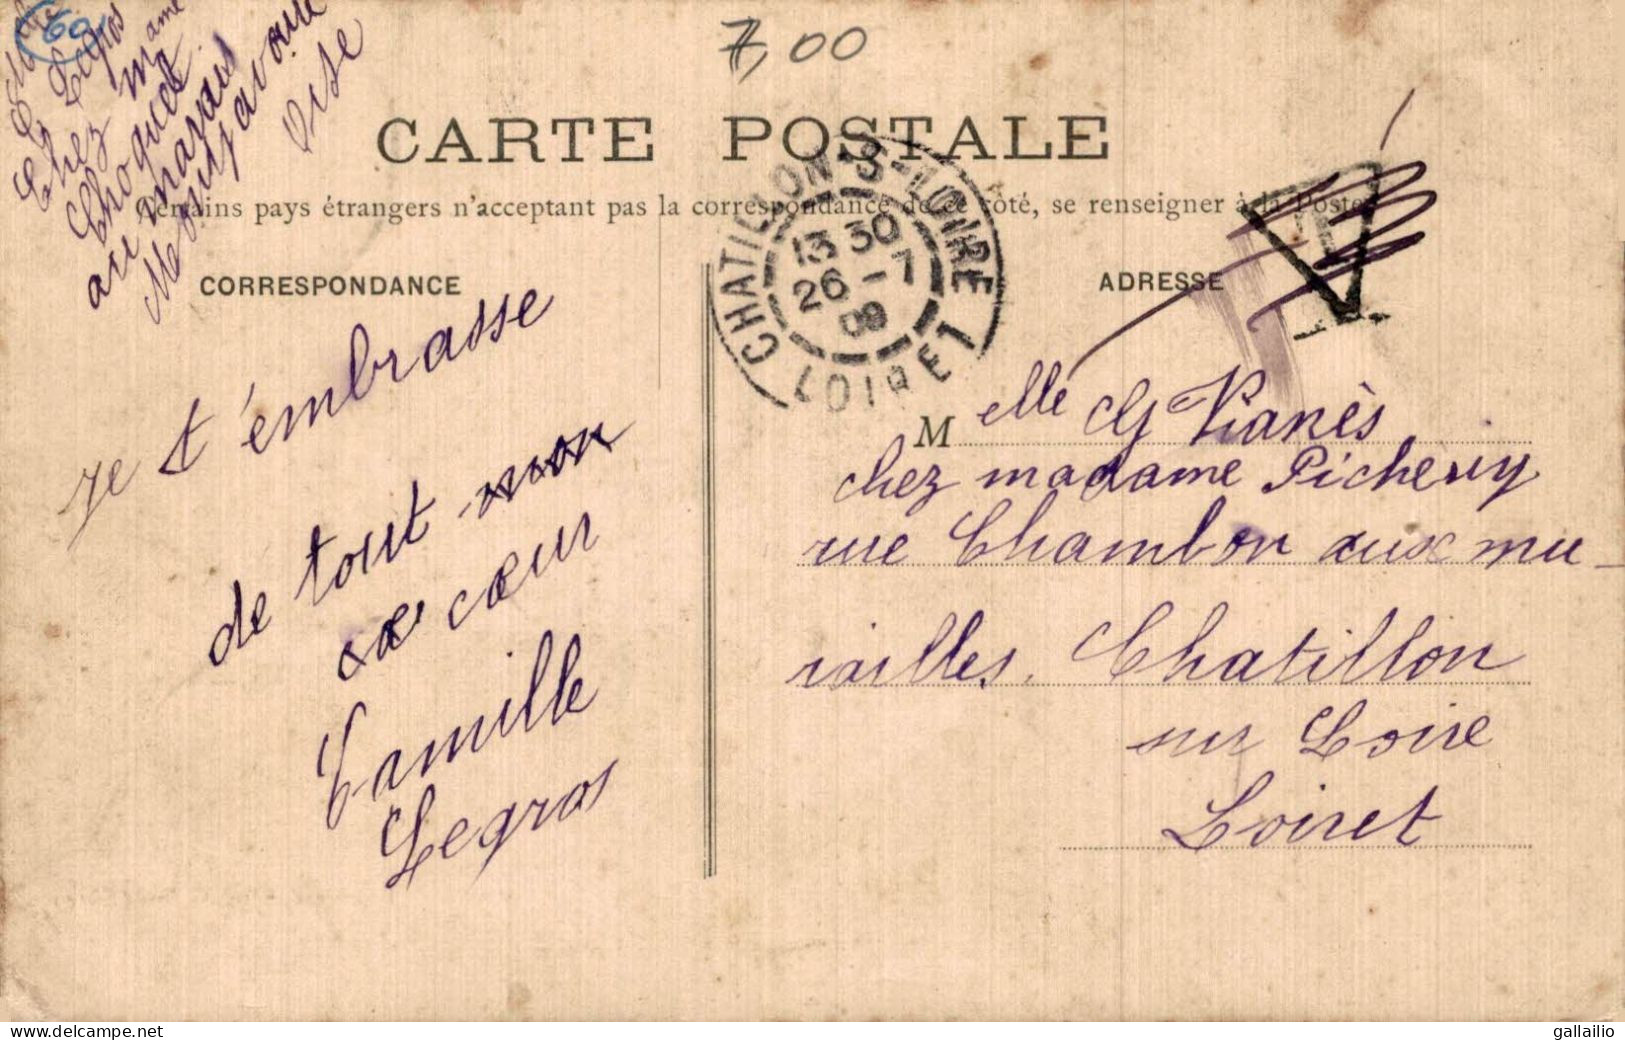 60
7,00
Legros
chez Mame
Choquet
au marais
Montjavoult
Oise
CARTE POSTALE
Certains pays étrangers n'acceptant pas la correspondance de ce côté, se renseigner à la Poste
CORRESPONDANCE
ADRESSE
CHATILLON-S-LOIRE
13 30
26 - 7
09
LOIRET
T
je t'embrasse
de tout mon
cœur
Camille
Legros
Melle G Vianès
chez madame Picheriy
rue Chambon aux mu-
railles. Chatillon
sur Loire
Loiret
delcampe.net
gallailio